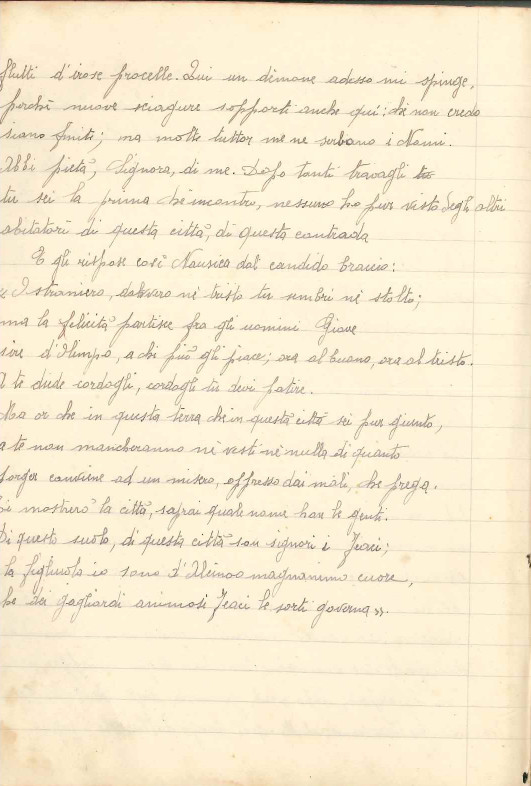 flutti d'irose procelle. Qui un dèmone adesso mi spinge,
perchè nuove sciagure sopporti anche qui: chè non credo
siano finiti; ma molte tuttor me ne serbano i Numi.
Abbi pietà, Signora, di me. Dopo tanti travagli tu
tu sei la prima ch'incontro, nessuno ho pur visto degli altri
abitatori di questa città, di questa contrada
E gli rispose così Nausica dal candido braccio:
« O straniero, davvero nè tristo tu sembri nè stolto;
ma la felicità partisce fra gli uomini Giove
sire d'Olimpo, a chi più gli piace; ora al buono, ora al tristo.
A te diede cordogli, cordogli tu devi patire.
Ma or che in questa terra che in questa città sei pur giunto,
a te non mancheranno nè vesti nè nulla di quanto
porger conviene ad un misero, oppresso dai mali, che prega.
Ti mostrerò la città, saprai quale nome han le genti.
Di questo suolo, di questa città son signori i Feaci;
la figliuola io sono d'Alcinoo magnanimo cuore,
che dei gagliardi animosi Feaci le sorti governa ».